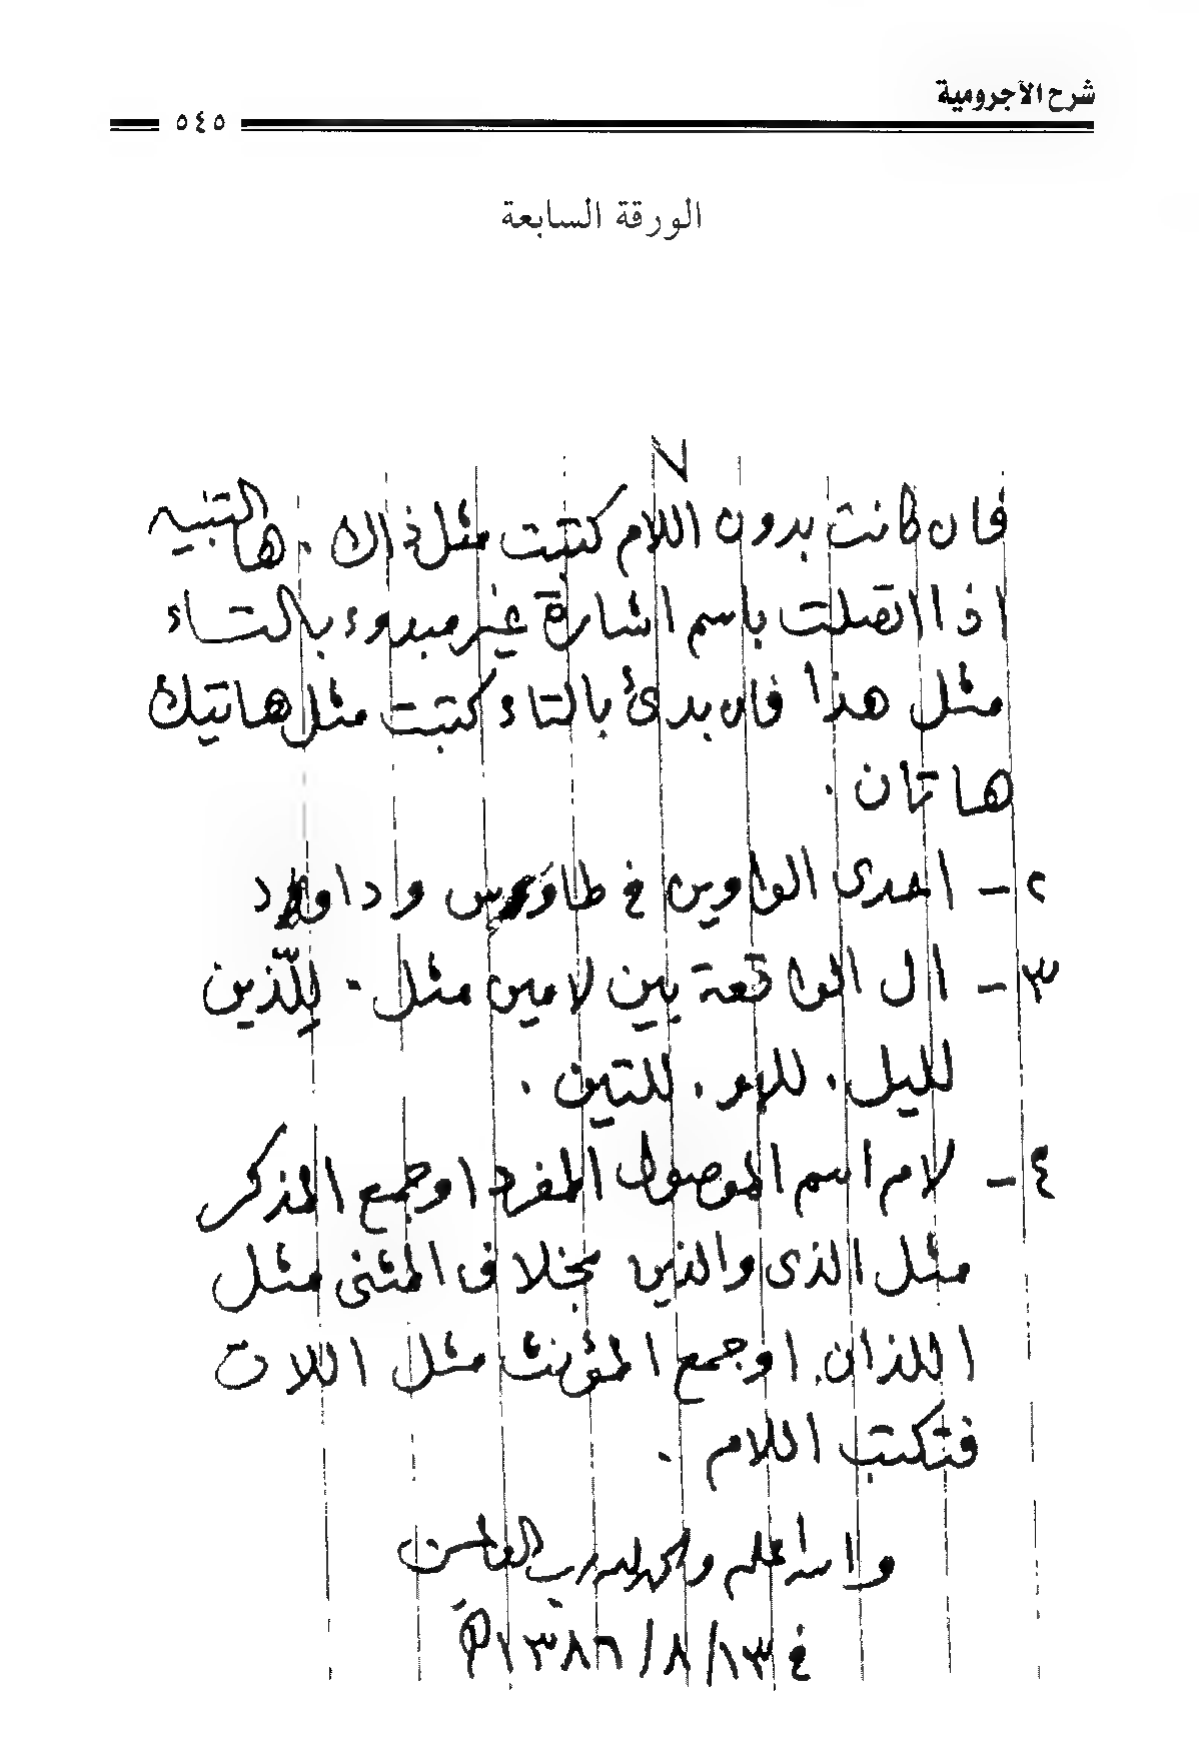 شرح الآجرومية
٥٤٥
الورقة السابعة
٧
فان كانت بدون اللام كتبت مثل ذاك . ها التنبيه
اذا اتصلت باسم اشارة غير مبدوء بالتاء
مثل هذا فان بدئ بالتاء كتبت مثل هاتيك
هاتان .
٢ - احدى الواوين في طاوس و داود
٣ - ال الواقعة بين لامين مثل . لِلّذين
لليل . للهو . للتين .
٤ - لام اسم الموصول المفرد او جمع المذكر
مثل الذى والذين بخلاف المثنى مثل
اللذان . او جمع المؤنث مثل اللات
فتكتب اللام .
والله اعلم والحمد لله رب العالمين
في ١٣/٨/١٣٨٦ه